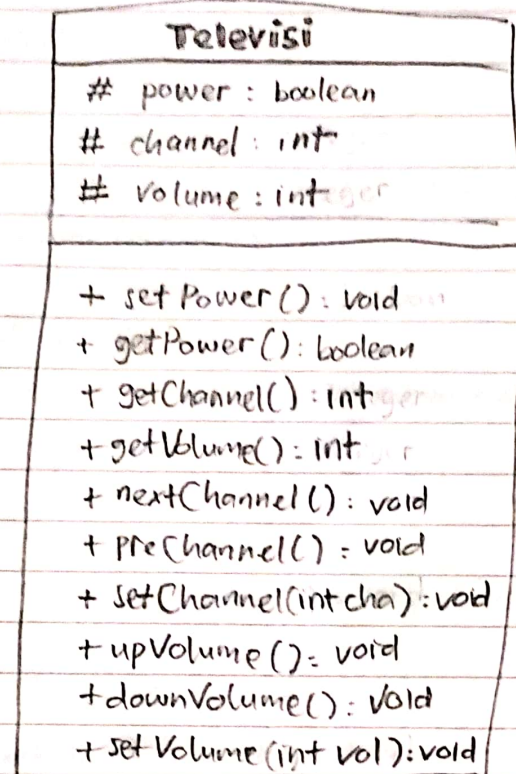 Televisi
# power : boolean
# channel : int
# volume : int
+ setPower() : void
+ getPower() : boolean
+ getChannel() : int
+ getVolume() : int
+ nextChannel() : void
+ preChannel() : void
+ setChannel(int cha) : void
+ upVolume() : void
+ downVolume() : void
+ setVolume(int vol) : void